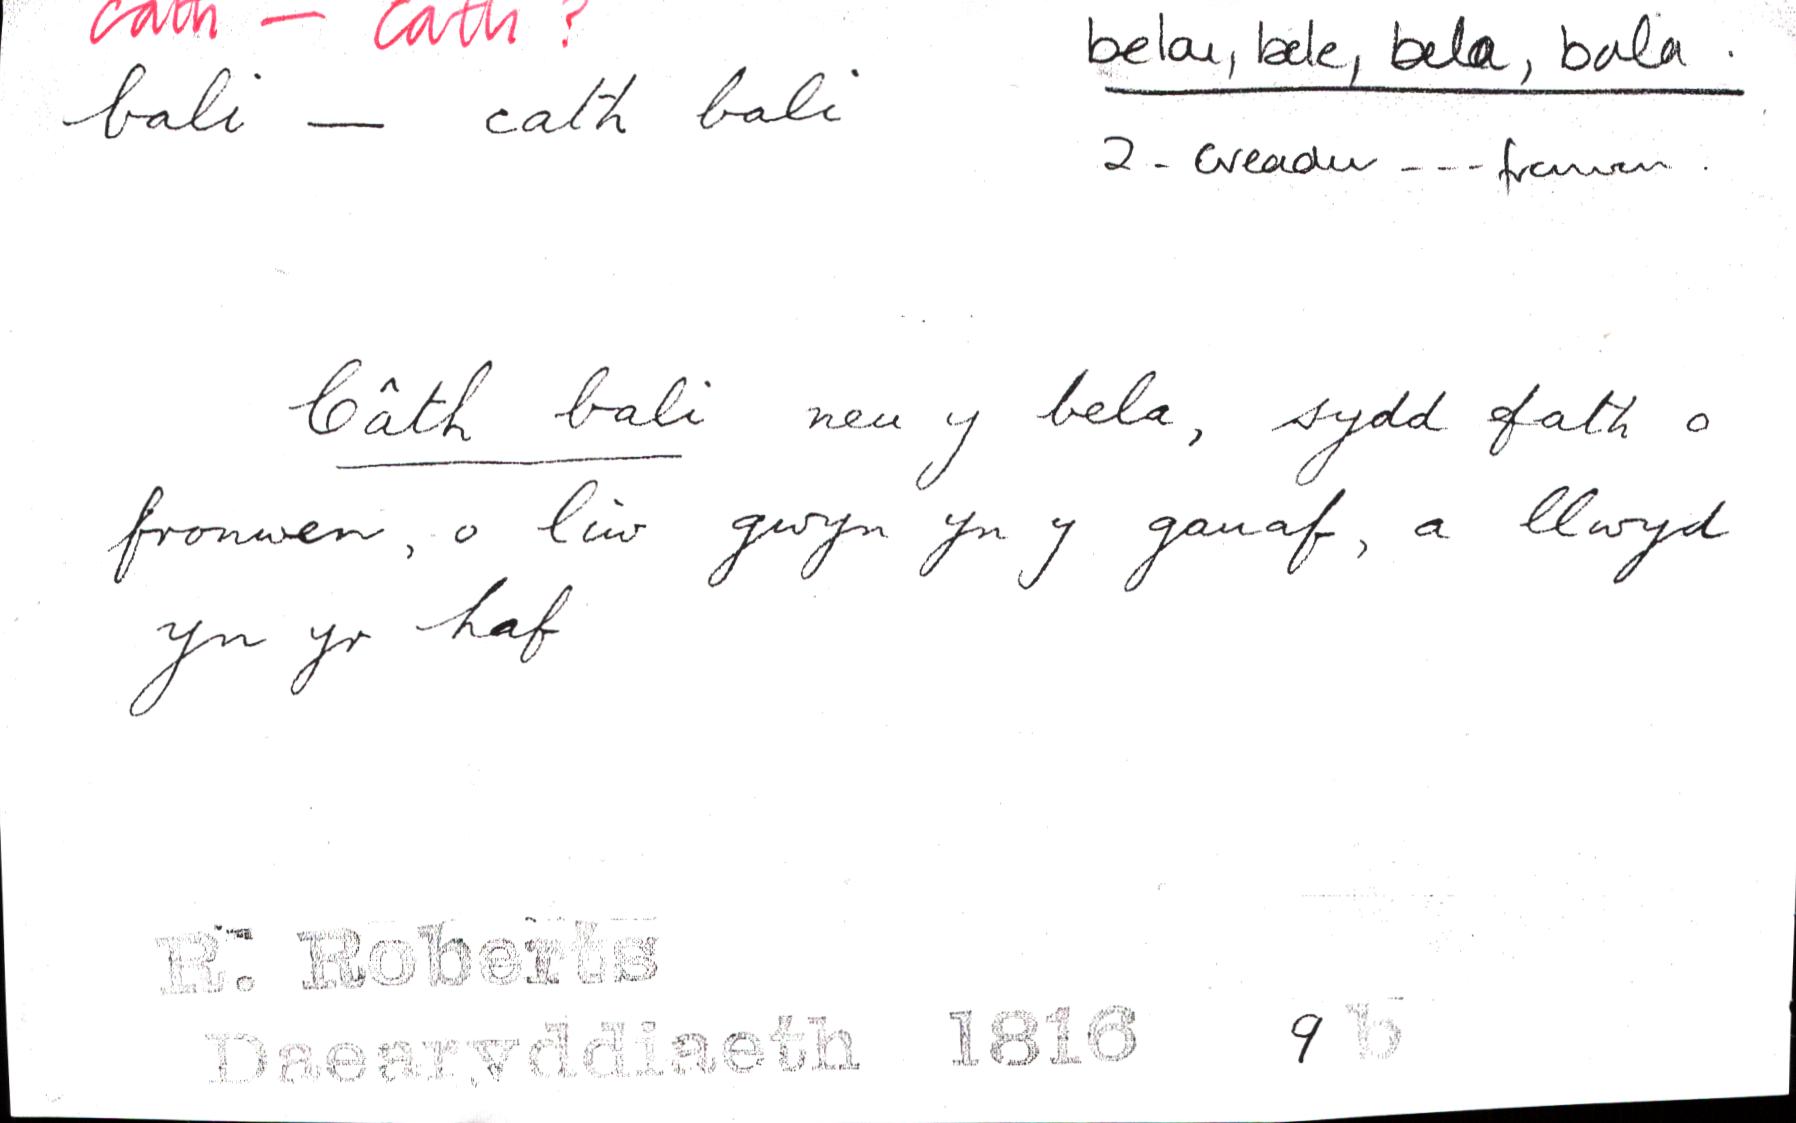 cath — cath ?
belau, bele, bela, bala .
bali — cath bali
2 - creadur --- fronwen .
Câth bali neu y bela, sydd fath o
fronwen, o liw gwyn yn y gauaf, a llwyd
yn yr haf
R. Roberts
Daearyddiaeth 1816 9 b